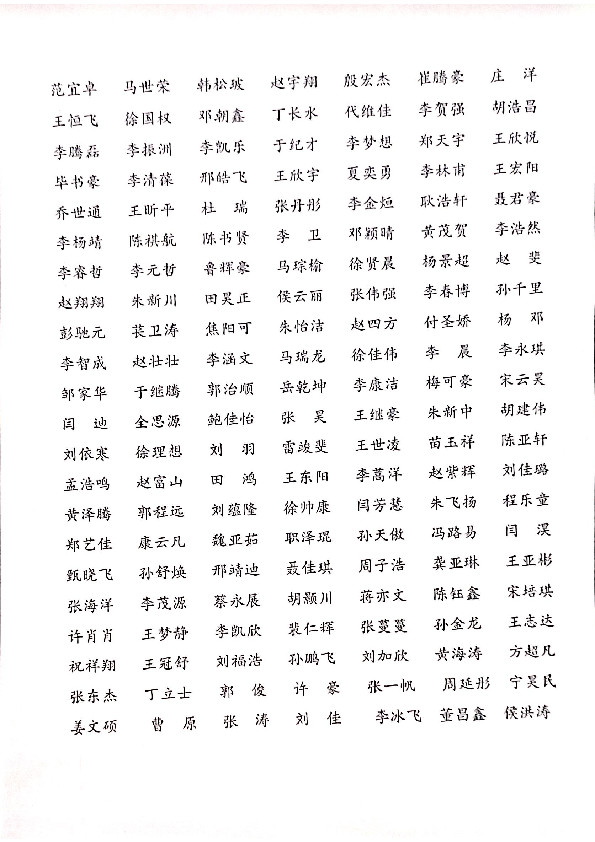 范宜卓 马世荣 韩松玻 赵宇翔 殷宏杰 崔腾豪 庄洋
王恒飞 徐国权 邓朝鑫 丁长水 代维佳 李贺强 胡浩昌
李腾磊 李振洲 李凯乐 于纪才 李梦想 郑天宇 王欣悦
毕书豪 李清葆 邢皓飞 王欣宇 夏奕勇 李林甫 王宏阳
乔世通 王昕平 杜瑞 张丹彤 李金烜 耿浩轩 聂君豪
李杨靖 陈祺航 陈书贤 李卫 邓颖晴 黄茂贺 李浩然
李睿哲 李元哲 鲁辉豪 马琮榆 徐贤晨 杨景超 赵斐
赵翔翔 朱新川 田昊正 侯云丽 张伟强 李春博 孙千里
彭驰元 裴卫涛 焦阳可 朱怡洁 赵四方 付圣娇 杨邓
李智成 赵壮壮 李涵文 马瑞龙 徐佳伟 李晨 李永琪
邹家华 于继腾 郭治顺 岳乾坤 李康洁 梅可豪 宋云昊
闫迪 全思源 鲍佳怡 张昊 王继豪 朱新中 胡建伟
刘依寒 徐理想 刘羽 雷竣斐 王世凌 苗玉祥 陈亚轩
孟浩鸣 赵富山 田鸿 王东阳 李蒿洋 赵紫辉 刘佳璐
黄泽腾 郭程远 刘蕴隆 徐帅康 闫芳慧 朱飞扬 程乐童
郑艺佳 康云凡 魏亚茹 职泽琨 孙天傲 冯路易 闫淏
甄晓飞 孙舒焕 邢靖迪 聂佳琪 周子浩 龚亚琳 王亚彬
张海洋 李茂源 蔡永展 胡颢川 蒋亦文 陈钰鑫 宋培琪
许肖肖 王梦静 李凯欣 裴仁辉 张蔓蔓 孙金龙 王志达
祝祥翔 王冠舒 刘福浩 孙鹏飞 刘加欣 黄海涛 方超凡
张东杰 丁立士 郭俊 许豪 张一帆 周延彤 宁昊民
姜文硕 曹原 张涛 刘佳 李冰飞 董昌鑫 侯洪涛